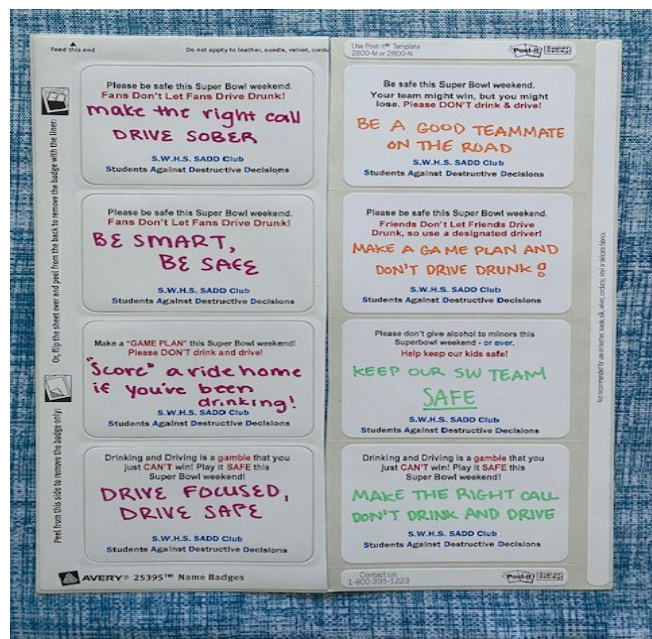 Feed this end
Do not apply to leather, suede, velvet, cordu
Or, flip the sheet over and peel from the back to remove the badge with the liner:
Peel from this side to remove the badge only:
Please be safe this Super Bowl weekend.
Fans Don't Let Fans Drive Drunk!
make the right call
DRIVE SOBER
S.W.H.S. SADD Club
Students Against Destructive Decisions
Please be safe this Super Bowl weekend.
Fans Don't Let Fans Drive Drunk!
BE SMART,
BE SAFE
S.W.H.S. SADD Club
Students Against Destructive Decisions
Make a "GAME PLAN" this Super Bowl weekend!
Please DON'T drink and drive!
"Score" a ride home
if you've been
drinking!
S.W.H.S. SADD Club
Students Against Destructive Decisions
Drinking and Driving is a gamble that you
just CAN'T win! Play it SAFE this
Super Bowl weekend!
DRIVE FOCUSED,
DRIVE SAFE
S.W.H.S. SADD Club
Students Against Destructive Decisions
AVERY® 25395™ Name Badges
Use Post-it® Template
2800-M or 2800-N
Post-it
Be safe this Super Bowl weekend.
Your team might win, but you might
lose. Please DON'T drink & drive!
BE A GOOD TEAMMATE
ON THE ROAD
S.W.H.S. SADD Club
Students Against Destructive Decisions
Please be safe this Super Bowl weekend.
Friends Don't Let Friends Drive
Drunk, so use a designated driver!
MAKE A GAME PLAN AND
DON'T DRIVE DRUNK!
S.W.H.S. SADD Club
Students Against Destructive Decisions
Please don't give alcohol to minors this
Superbowl weekend - or ever.
Help keep our kids safe!
KEEP OUR SW TEAM
SAFE
S.W.H.S. SADD Club
Students Against Destructive Decisions
Drinking and Driving is a gamble that you
just CAN'T win! Play it SAFE this
Super Bowl weekend!
MAKE THE RIGHT CALL
DON'T DRINK AND DRIVE
S.W.H.S. SADD Club
Students Against Destructive Decisions
Contact us:
1-800-395-1223
Post-it